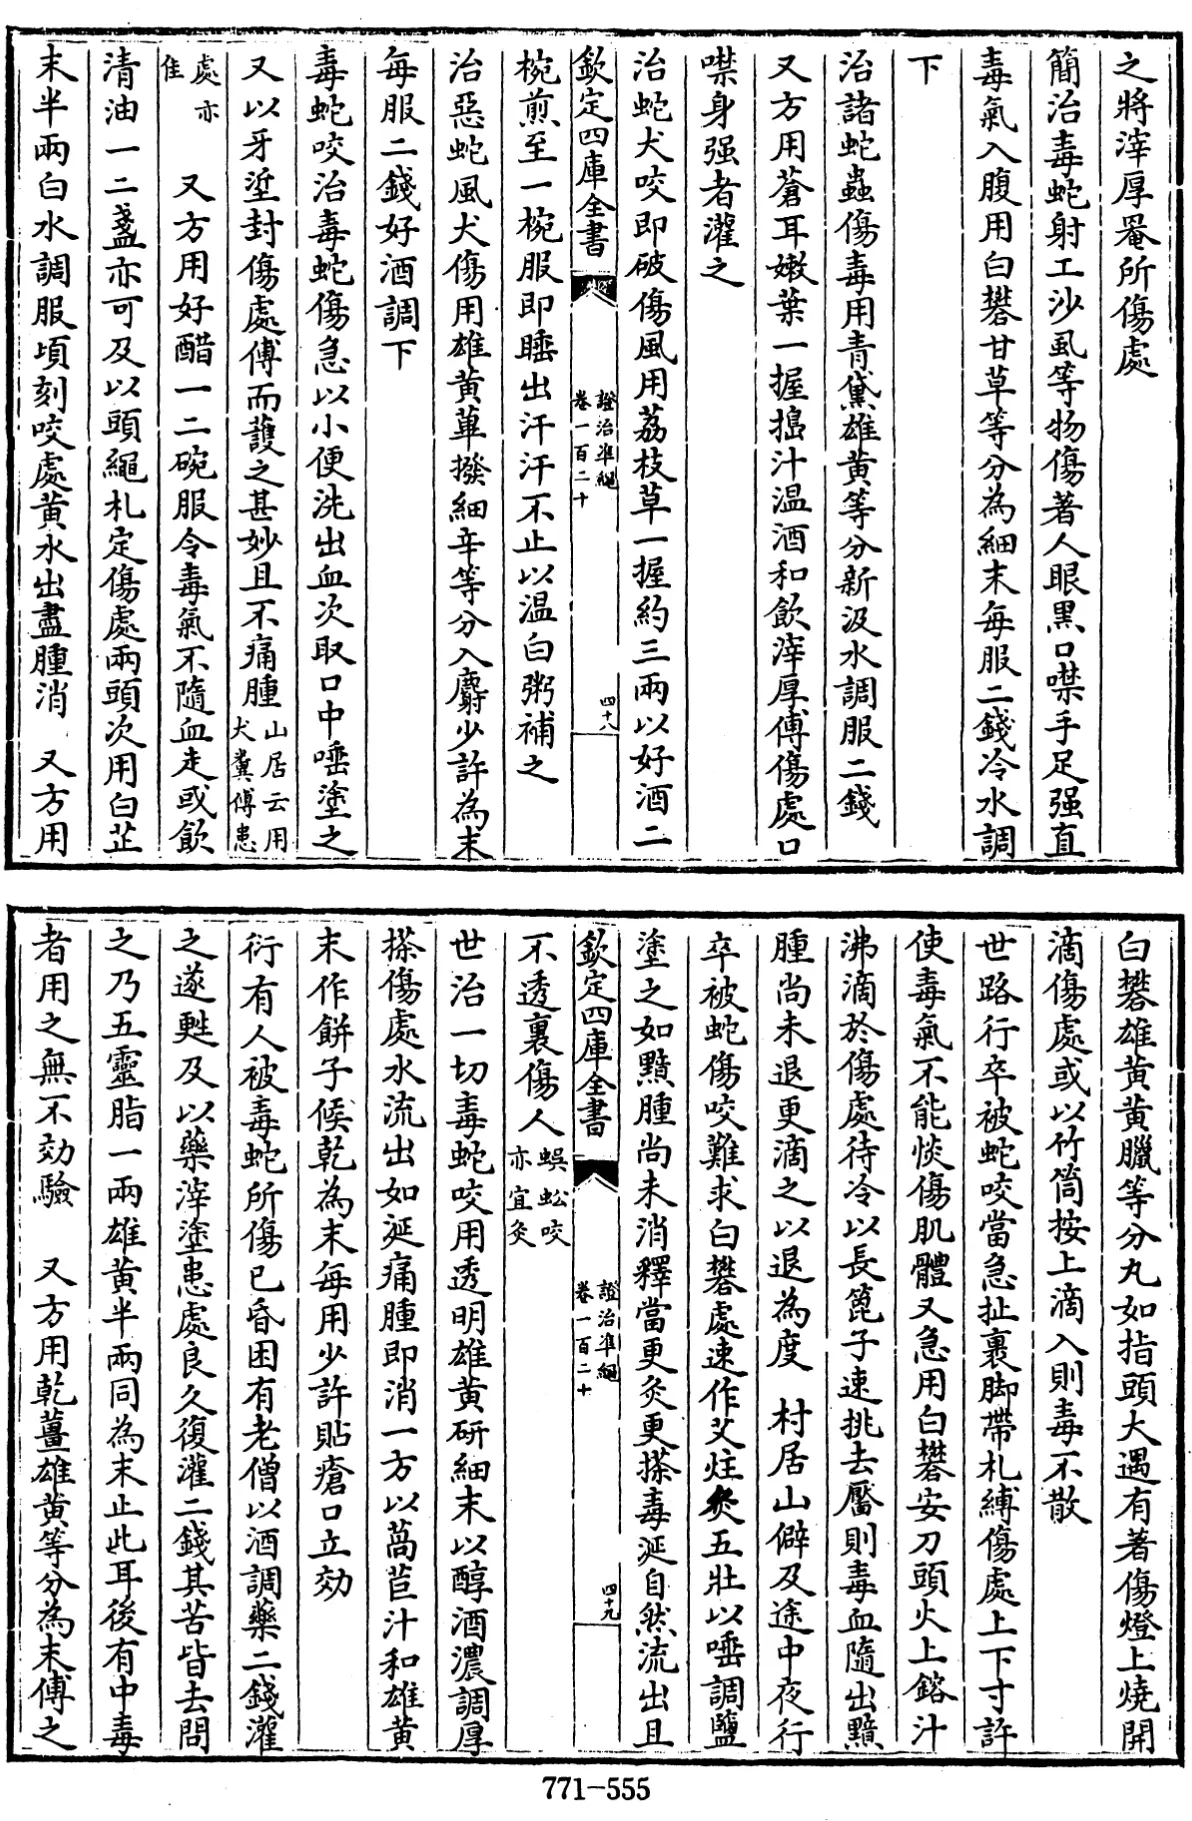 之將滓厚罨所傷處
簡治毒蛇射工沙虱等物傷著人眼黒口噤手足强直
毒氣入腹用白礬甘草等分為細末毎服二錢冷水調
下
治諸蛇蟲傷毒用青黛雄黄等分新汲水調服二錢
又方用蒼耳嫩葉一握搗汁温酒和飲滓厚傅傷處口
噤身强者灌之
治蛇犬咬即破傷風用荔枝草一握約三兩以好酒二
欽定四庫全書
證治準繩
卷一百二十
四十八
椀煎至一椀服即睡出汗汗不止以温白粥補之
治惡蛇風犬傷用雄黄蓽撥細辛等分入麝少許為末
每服二錢好酒調下
毒蛇咬治毒蛇傷急以小便洗出血次取口中唾塗之
又以牙垽封傷處傅而䕶之甚妙且不痛腫山居云用
犬糞傅患
處亦
佳
又方用好醋一二碗服令毒氣不隨血走或飲
清油一二盞亦可及以頭繩札定傷處兩頭次用白芷
末半兩白水調服頃刻咬處黄水出盡腫消 又方用
白礬雄黄黄臘等分丸如指頭大遇有著傷燈上燒開
滴傷處或以竹筒按上滴入則毒不散
世路行卒被蛇咬當急扯裹脚帶札縛傷處上下寸許
使毒氣不能惔傷肌體又急用白礬安刀頭火上鎔汁
沸滴於傷處待冷以長篦子速挑去靨則毒血隨出黯
腫尚未退更滴之以退為度 村居山僻及途中夜行
卒被蛇傷咬難求白礬處速作艾炷灸五壯以唾調鹽
塗之如黯腫尚未消釋當更灸更搽毒涎自然流出且
欽定四庫全書
證治準繩
卷一百二十
四十九
不透裏傷人蜈蚣咬
亦宜灸
世治一切毒蛇咬用透明雄黄研細末以醇酒濃調厚
搽傷處水流出如涎痛腫即消一方以萵苣汁和雄黄
末作餅子候乾為末每用少許貼瘡口立効
衍有人被毒蛇所傷已昏困有老僧以酒調藥二錢灌
之遂甦及以藥滓塗患處良久復灌二錢其苦皆去問
之乃五靈脂一兩雄黄半兩同為末止此耳後有中毒
者用之無不効驗 又方用乾薑雄黄等分為末傅之
771-555